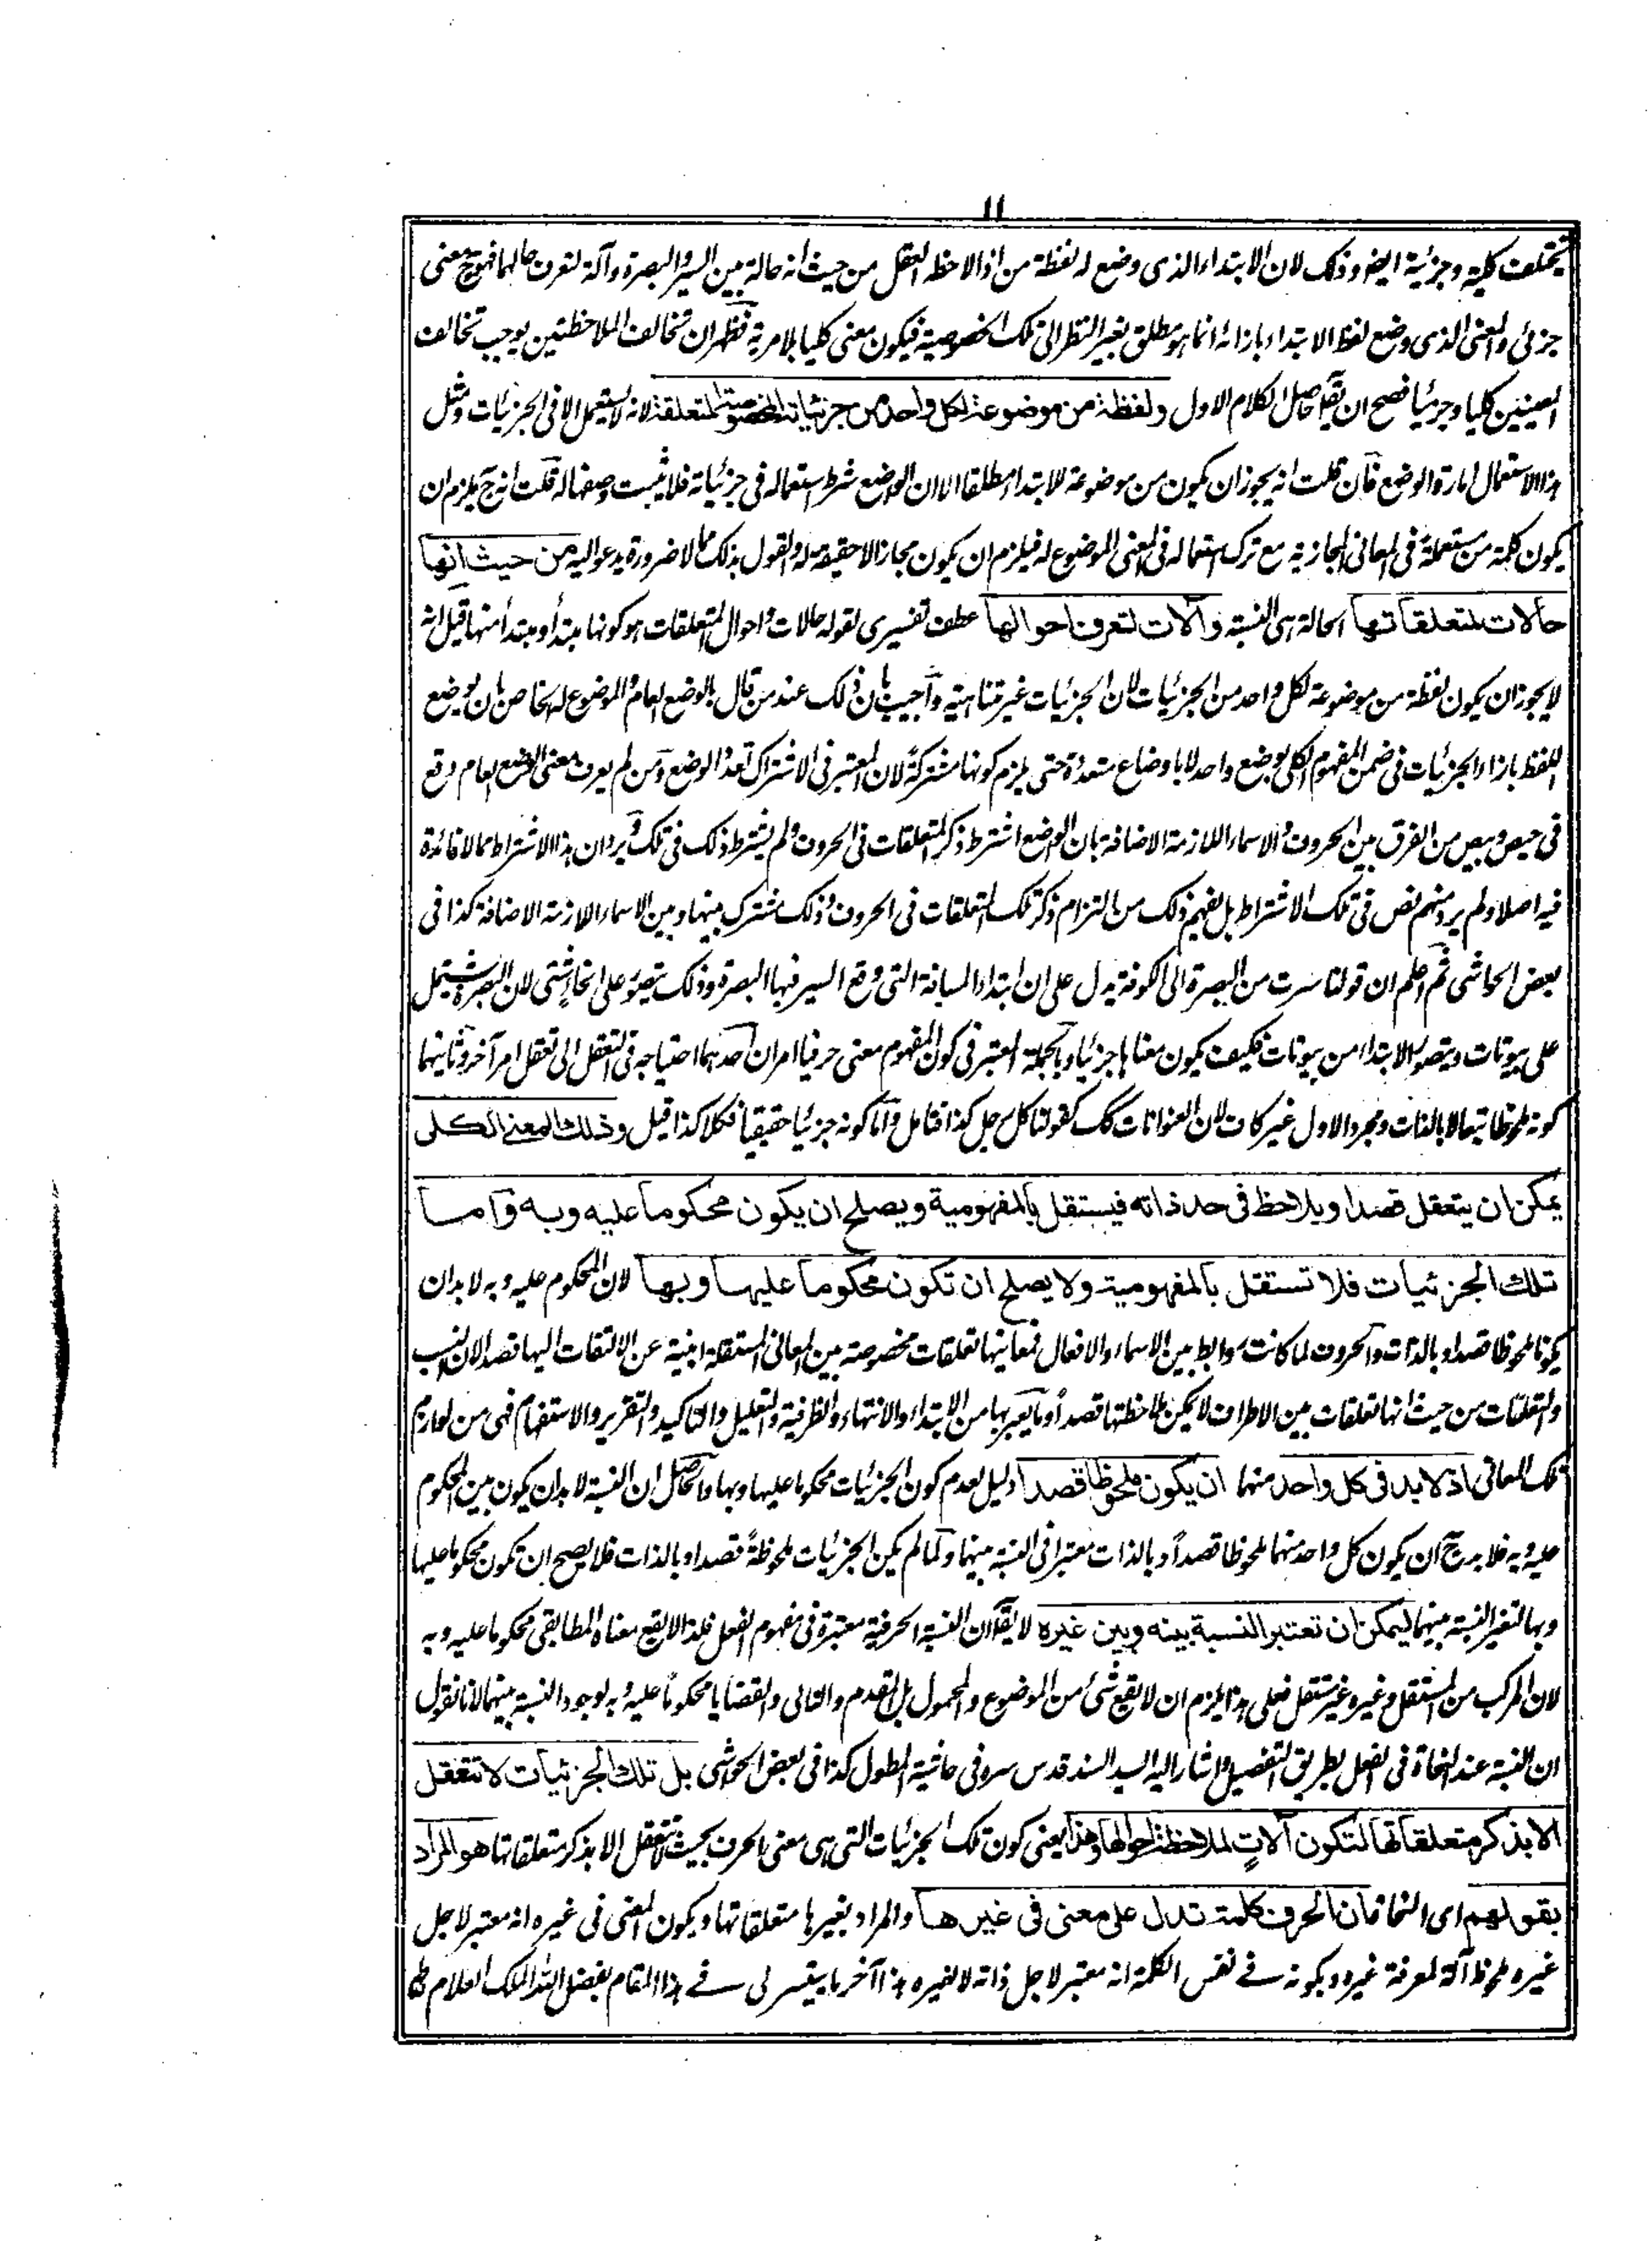 ١١
يختلف كلية وجزئية ايضا وذلك لان الابتداء الذى وضع له لفظة من اذا لاحظه العقل من حيث انه حالة بين السير والبصرة وآلة لتعرف حالهما فهو ح معنى
جزئى والمعنى الذى وضع لفظ الابتداء بازائه انما هو مطلق بغير النظر الى تلك الخصوصية فيكون معنى كليا بلا مرية فظهر ان تخالف الملاحظتين يوجب تخالف
المعنيين كليا وجزئيا فصح ان يقال حاصل الكلام الاول ولفظة من موضوعة لكل واحد من جزئياته المخصوصة المتعلقة لانه لا يستعمل الا فى الجزئيات ومثل
هذا الاستعمال امارة الوضع فان قلت انه يجوز ان يكون من موضوعة للابتداء مطلقا الا ان الواضع شرط استعماله فى جزئياته فلا يثبت وضعها له قلت انه ح يلزم ان
يكون كلمة من مستعملة فى المعانى المجازية مع ترك استعماله فى المعنى الموضوع له فيلزم ان يكون مجازا لا حقيقة له والقول بذلك مما لا ضرورة يدعو اليه من حيث انها
حالات لمتعلقاتها الحالة هى النسبة وآلات لتعرف احوالها عطف تفسيرى لقوله حالات واحوال المتعلقات هو كونها مبتدأ ومبتدأ منها قيل انه
لا يجوز ان يكون لفظة من موضوعة لكل واحد من الجزئيات لان الجزئيات غير متناهية وأجيب بان ذلك عند من قال بالوضع العام والموضوع له الخاص بان يوضع
اللفظ بازاء الجزئيات فى ضمن المفهوم الكلى بوضع واحد لا باوضاع متعددة حتى يلزم كونها مشتركة لان المعتبر فى الاشتراك تعدد الوضع ومن لم يعرف معنى الوضع العام وقع
فى حيص وبيص من الفرق بين الحروف والاسماء اللازمة الاضافة بان الواضع اشترط ذكر المتعلقات فى الحروف ولم يشترط ذلك فى تلك ويرد ان هذا الاشتراط مما لا فائدة
فيه اصلا ولم يرد منهم نص فى تلك الاشتراط بل يفهم ذلك من التزام ذكر تلك المتعلقات فى الحروف وذلك مشترك بينها وبين الاسماء اللازمة الاضافة كذا فى
بعض الحواشى ثم اعلم ان قولنا سرت من البصرة الى الكوفة يدل على ان ابتداء المسافة التى وقع السير فيها البصرة وذلك يتصور على انحاء شتى لان البصرة يشتمل
على بيوتات ويتصور الابتداء من بيوتات فكيف يكون معناها جزئيا وبالجملة المعتبر فى كون المفهوم معنى حرفيا امران احدهما احتياجه فى التعقل الى تعقل امر آخر وثانيهما
كونه ملحوظا تبعا لا بالذات ومجرد الاول غير كاف لان العنوانات كك كقولنا كل رجل كذا فتامل واما كونه جزئيا حقيقيا فكلا كذا قيل وذلك المعنى الكلى
يمكن ان يتعقل قصدا ويلاحظ فى حد ذاته فيستقل بالمفهومية ويصلح ان يكون محكوما عليه وبه واما
تلك الجزئيات فلا تستقل بالمفهومية ولا يصلح ان تكون محكوما عليها وبها لان المحكوم عليه وبه لابد ان
يكونا ملحوظا قصدا وبالذات والحروف لما كانت روابط بين الاسماء والافعال فمعانيها تعلقات مخصوصة بين المعانى المستقلة ابنية عن الالتفات اليها قصدا لان النسب
والتعلقات من حيث انها تعلقات بين الاطراف لا يمكن ملاحظتها قصدا وما يعبر بها من الابتداء والانتهاء والظرفية والتعليل والتاكيد والتقرير والاستفهام فهى من لوازم
تلك المعانى اذ لابد فى كل واحد منهما ان يكون ملحوظا قصدا دليل لعدم كون الجزئيات محكوما عليها وبها والحاصل ان النسبة لابد ان يكون بين المحكوم
عليه وبه فلا بد ح ان يكون كل واحد منهما ملحوظا قصدا وبالذات معتبرا فى النسبة بينهما ولما لم يكن الجزئيات ملحوظة قصدا وبالذات فلا يصح ان تكون محكوما عليها
وبها لتغير النسبة بينهما ليمكن ان تعتبر النسبة بينه وبين غيره لا يقال ان النسبة الحرفية معتبرة فى مفهوم الفعل فلذا لا يقع معناه المطابقى محكوما عليه وبه
لان المركب من المستقل وغيره غير مستقل فعلى هذا يلزم ان لا يقع شئ من الموضوع والمحمول بل المقدم والتالى والقضايا محكوما عليه وبه لوجود النسبة بينهما لانا نقول
ان النسبة عند النحاة فى الفعل بطريق التفصيل واشار اليه السيد السند قدس سره فى حاشية المطول كذا فى بعض الحواشى بل تلك الجزئيات لا تتعقل
الا بذكر متعلقاتها لتكون آلات لملاحظة احوالها وهذا يعنى كون تلك الجزئيات التى هى معنى الحرف بحيث لا تتعقل الا بذكر متعلقاتها هو المراد
بقولهم اى النحاة ان الحرف كلمة تدل على معنى فى غيرها والمراد بغيرها متعلقاتها ويكون المعنى فى غيره انه معتبر لاجل
غيره ملحوظ آلة لمعرفة غيره وبكونه فى نفس الكلمة انه معتبر لاجل ذاته لا لغيره هذا آخر ما يتيسر لى فى هذا المقام بفضل الله الملك العلام